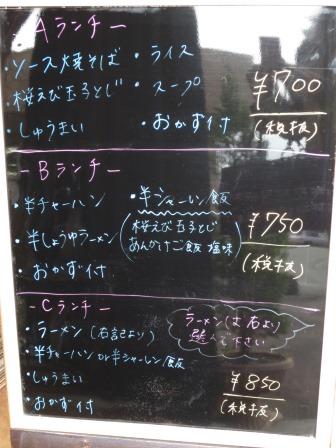 - Aランチ -
・ソース焼きそば ・ライス
・桜えび玉子とじ ・スープ
・しゅうまい ・おかず付
¥700
(税抜)
- Bランチ -
・半チャーハン ・半シャーレン飯
・半しょうゆラーメン (桜えび玉子とじ
あんかけご飯 塩味)
・おかず付
¥750
(税抜)
- Cランチ -
・ラーメン (右記より)
ラーメンは右より
選んで下さい
・半チャーハン or 半シャーレン飯
・しゅうまい
・おかず付
¥850
(税抜)